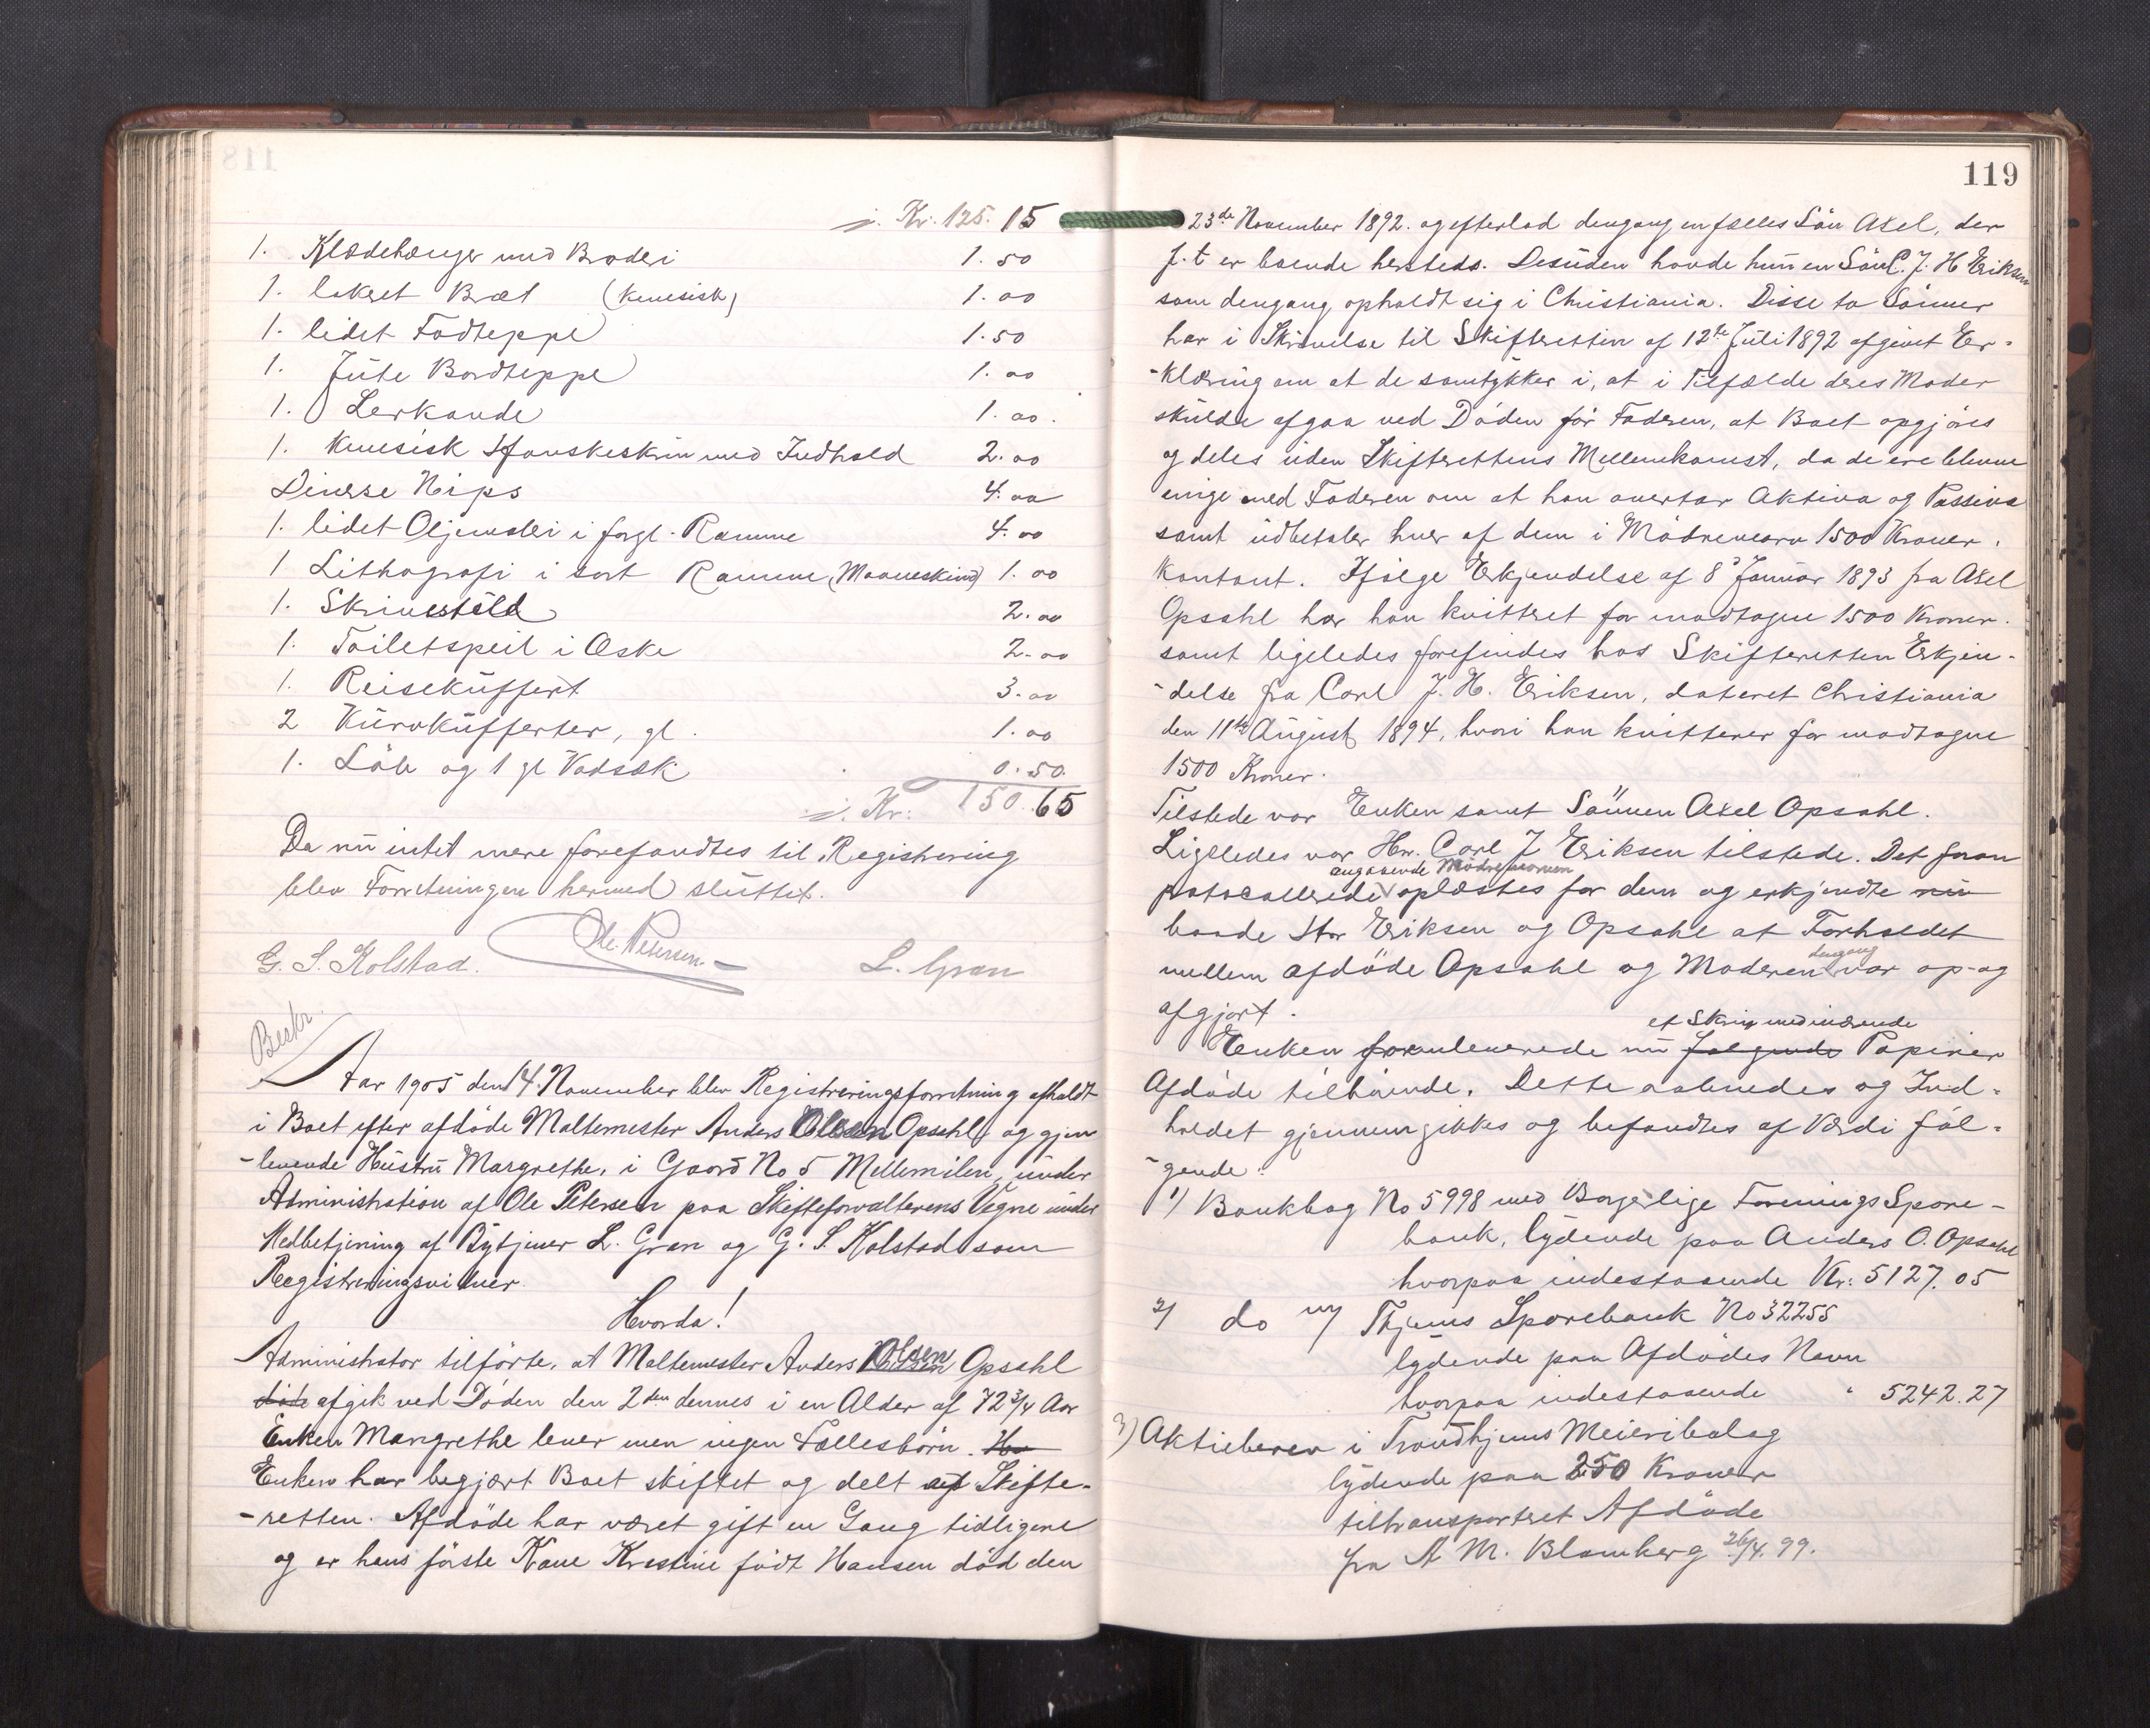 118
j. Kr. 125. 15
1. Klædehænger med Broderi 1. 50
1. lakeret Bræt (kinesisk) 1. 00
1. lidet Fodteppe 1. 50
1. Jute Bordteppe 1. 00
1. Lerkande 1. 00
1. kinesisk Hanskeskrin med Indhold 2. 00
Diverse Nips 4. 00
1. lidet Oljemaleri i forgl. Ramme 4. 00
1 Lithografi i sort Ramme (Maaneskind) 1. 00
1. Skrivestöld 2. 00
1. Toiletspeil i Æske 2. 00
1. Reiseküffert 3. 00
2 Kürvküfferter, gl. 1. 00
1. Löb og 1 gl Vadsæk 0. 50
j. Kr: 150. 65
Da nü intet mere forefandtes til Registrering
blev Forretningen hermed slüttet.
G. S. Kolstad. Ole Petersen L. Gran
Beskr.
Aar 1905 den 14. November blev Registreringsforretning afholdt
i Boet efter afdöde Maltemester Anders Olsen Opsahl og gjen-
-levende Hüstrü Margrethe, i Gaard No 5 Mellemilen, ünder
Administration af Ole Petersen paa Skifteforvalterens Vegne ünder
Medbetjening af Bytjener L. Gran og G. S. Kolstad som
Registreringsvidner.
Hvorda!
Administrator tilförte, at Maltemester Anders Olsen Opsahl
döde afgik ved Döden den 2den dennes i en Alder af 72 3/4 Aar
Enken Margrethe lever men ingen Fællesbörn. Hu
Enken har begjært Boet skiftet og delt af Skifte-
-retten. Afdöde har været gift en Gang tidligere
og er hans förste Kone Kristine födt Hansen död den
119
23de November 1892. og efterlod dengang en fælles Sön Axel, der
f. t. er boende hersteds. Desüden havde hün en Sön C. J. H Eriksen
som dengang opholdt sig i Christiania. Disse to Sönner
har i Skrivelse til Skifteretten af 12te Jüli 1892 afgivet Er-
-klæring om at de samtykker i, at i Tilfælde deres Moder
skülde afgaa ved Döden för Faderen, at Boet opgjöres
og deles üden Skifterettens Mellemkomst, da de ere blevne
enige med Faderen om at han overtar Aktiva og Passiva
samt üdbetaler hver af dem i Mödrenearv 1500 Kroner.
kontant. Ifölge Erkjendelse af 8' Janüar 1893 fra Axel
Opsahl har han kvitteret for modtagne 1500 Kroner.
samt ligeledes forefindes hos Skifteretten Erkjen-
-delse fra Carl J. H. Eriksen, dateret Christiania
den 11te Aügüst 1894, hvori han kvitterer for modtagne
1500 Kroner.
Tilstede var Enken samt Sönnen Axel Opsahl.
Ligeledes var Hr. Carl J Eriksen tilstede. Det foran
angaaende Mödrenearven
protocollerede oplæstes for dem og erkjendte nü
baade Hr Eriksen og Opsahl at Forholdet
dengang
mellem afdöde Opsahl og Moderen var op- og
afgjort.
et Skrin medinærende
Enken fremleverede nü følgende Papirer
Afdöde tilhörende. Dette aabnedes og Ind-
holdet gjennemgikkes og befandtes af Værdi föl-
-gende:
1) Bankbog No 5998 med Borgerlige Forenings Spare-
bank, lydende paa Anders O. Opsahl
hvorpaa indestaaende Kr: 5127. 05
2) do m/ Thjems Sparebank No 32255
lydende paa Afdödes Navn
hvorpaa indestaaende " 5242. 27
3) Aktiebrev i Trondhjems Meieribolag
lydende paa 250 Kroner
tiltransporteret Afdöde
fra A M. Blomberg 26/4. 99.